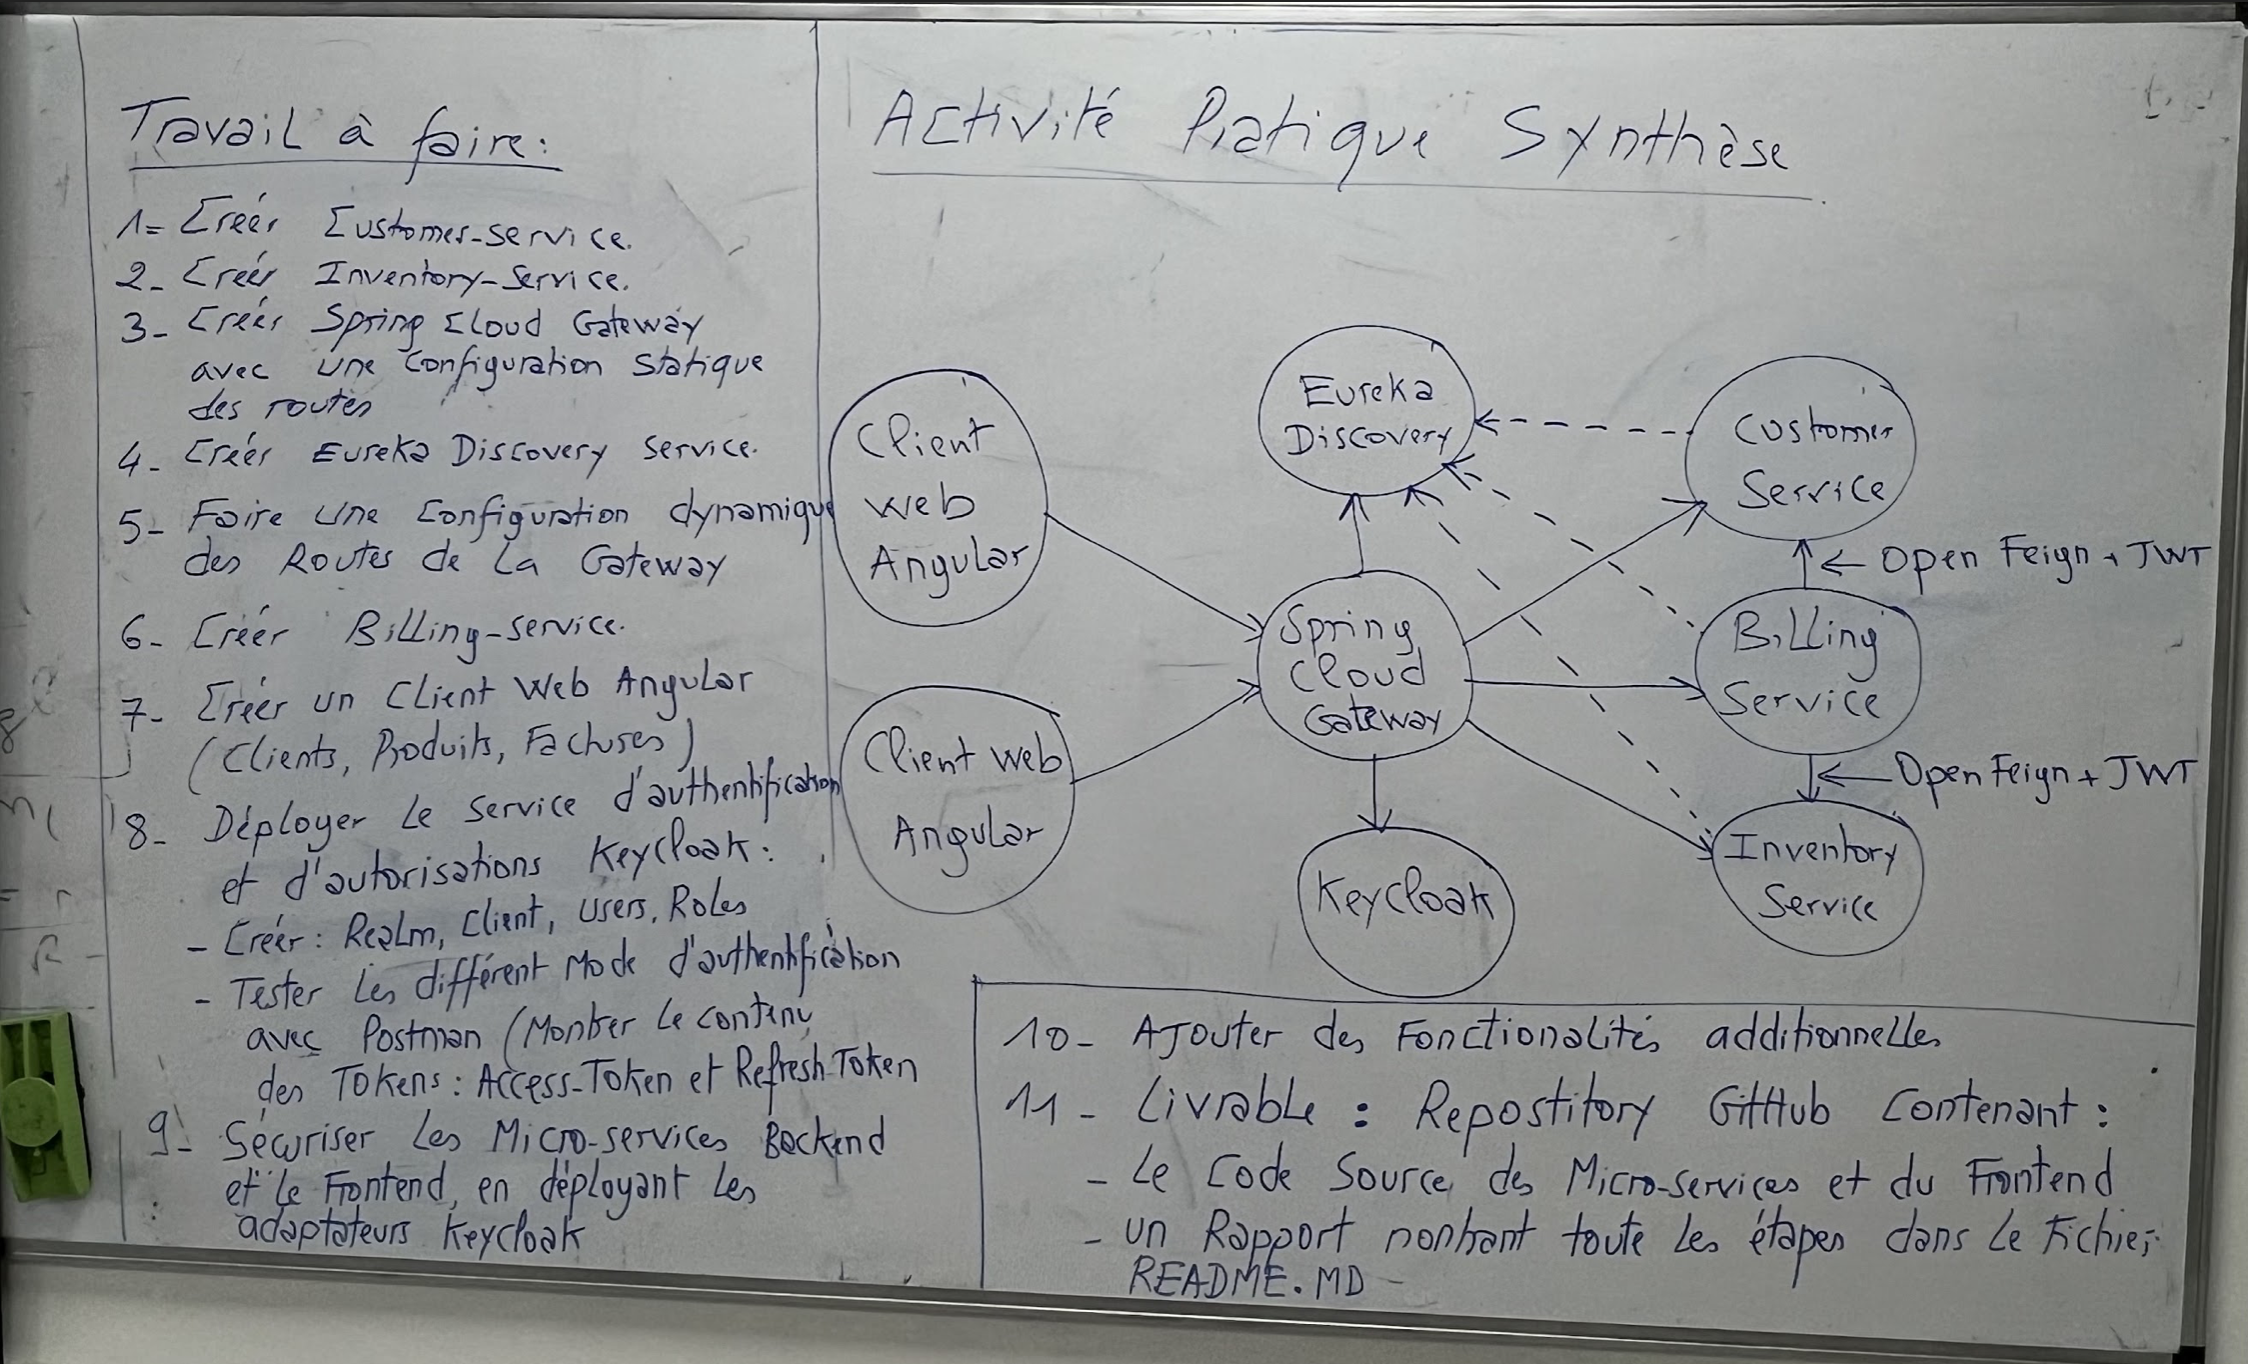 Travail à faire:
1- Créer Customer-service.
2- Créer Inventory-Service.
3- Créer Spring Cloud Gateway
avec une configuration statique
des routes
4- Créer Eureka Discovery service.
5- Faire une configuration dynamique
des Routes de la Gateway
6- Créer Billing-service.
7- Créer un Client Web Angular
(Clients, Produits, Factures)
8- Déployer le service d'authentification
et d'autorisations Keycloak:
- Créer: Realm, Client, Users, Roles
- Tester les différent Mode d'authentification
avec Postman (Montrer le contenu
des Tokens: Access-Token et Refresh-Token
9- Sécuriser les Micro-services Backend
et le Frontend, en déployant les
adaptateurs Keycloak
Activité Pratique Synthèse
Client
Web
Angular
Client Web
Angular
Eureka
Discovery
Spring
Cloud
Gateway
Keycloak
Customer
Service
Open Feign + JWT
Billing
Service
Open Feign + JWT
Inventory
Service
10- Ajouter des Fonctionalités additionnelles
11- Livrable: Repostitory GitHub contenant:
- Le Code Source des Micro-services et du Frontend
- un Rapport montrant toute les étapes dans le Fichier
README.MD